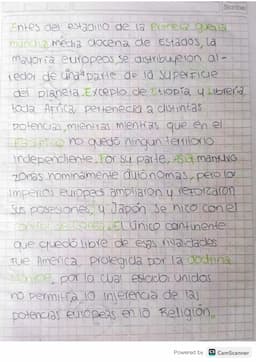 Antes del estallido de la Primera guerra
mundial media docena de Estados, la
mayoria europeos se distribuyeron al-
rededor de una parte de la superficie
del planeta. Excepto de Etiopia y Liberia
toda Africa pertenecia a distintas
potencias, mientras mientras que en el
Pacifico no quedó ningun territorio
independiente. Por su parte, Asia mantuvo
zonas nominamente autónomas, pero los
imperios europeos ampliaron y reforzaron
sus posesiones, y Japón se hizo con el
El único continente
que quedó libre de esas rivalidades
fue America, protegida por la doctrina
por la cual estados unidos
no permitia la inferencia de las
potencias europeas en la Religión.
Powered by CS CamScanner